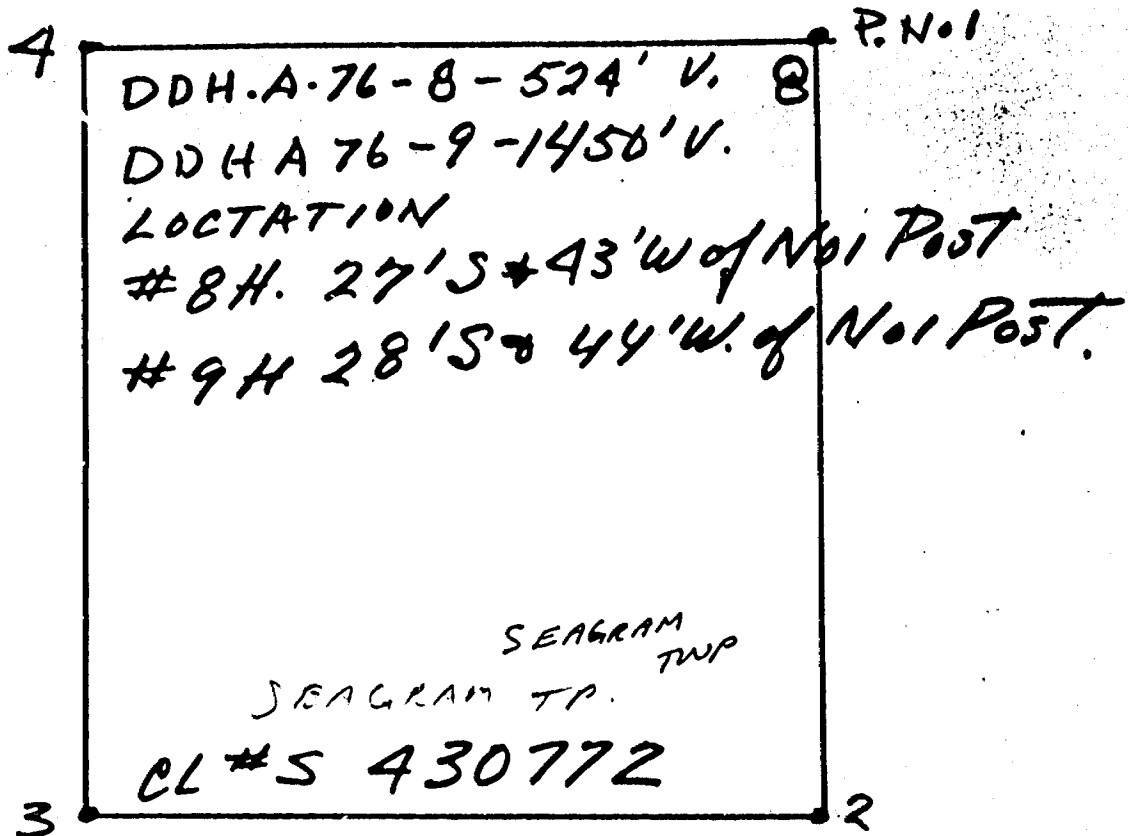 4
P. No 1
DDH.A.76-8-524' V.
8
DDH A 76-9-1450' V.
LOCTATION
#8H. 27'S & 43'W of No1 Post
#9H 28'S & 44'W. of No1 Post.
SEAGRAM
TWP
SEAGRAM TP.
CL #S 430772
3
2